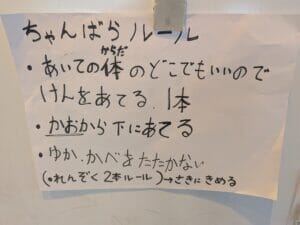 ちゃんばらルール
・あいての体のどこでもいいので
からだ
けんをあてる.1本
・かおから下にあてる
・ゆか.かべをたたかない
(・れんぞく2本ルール)→さきにきめる